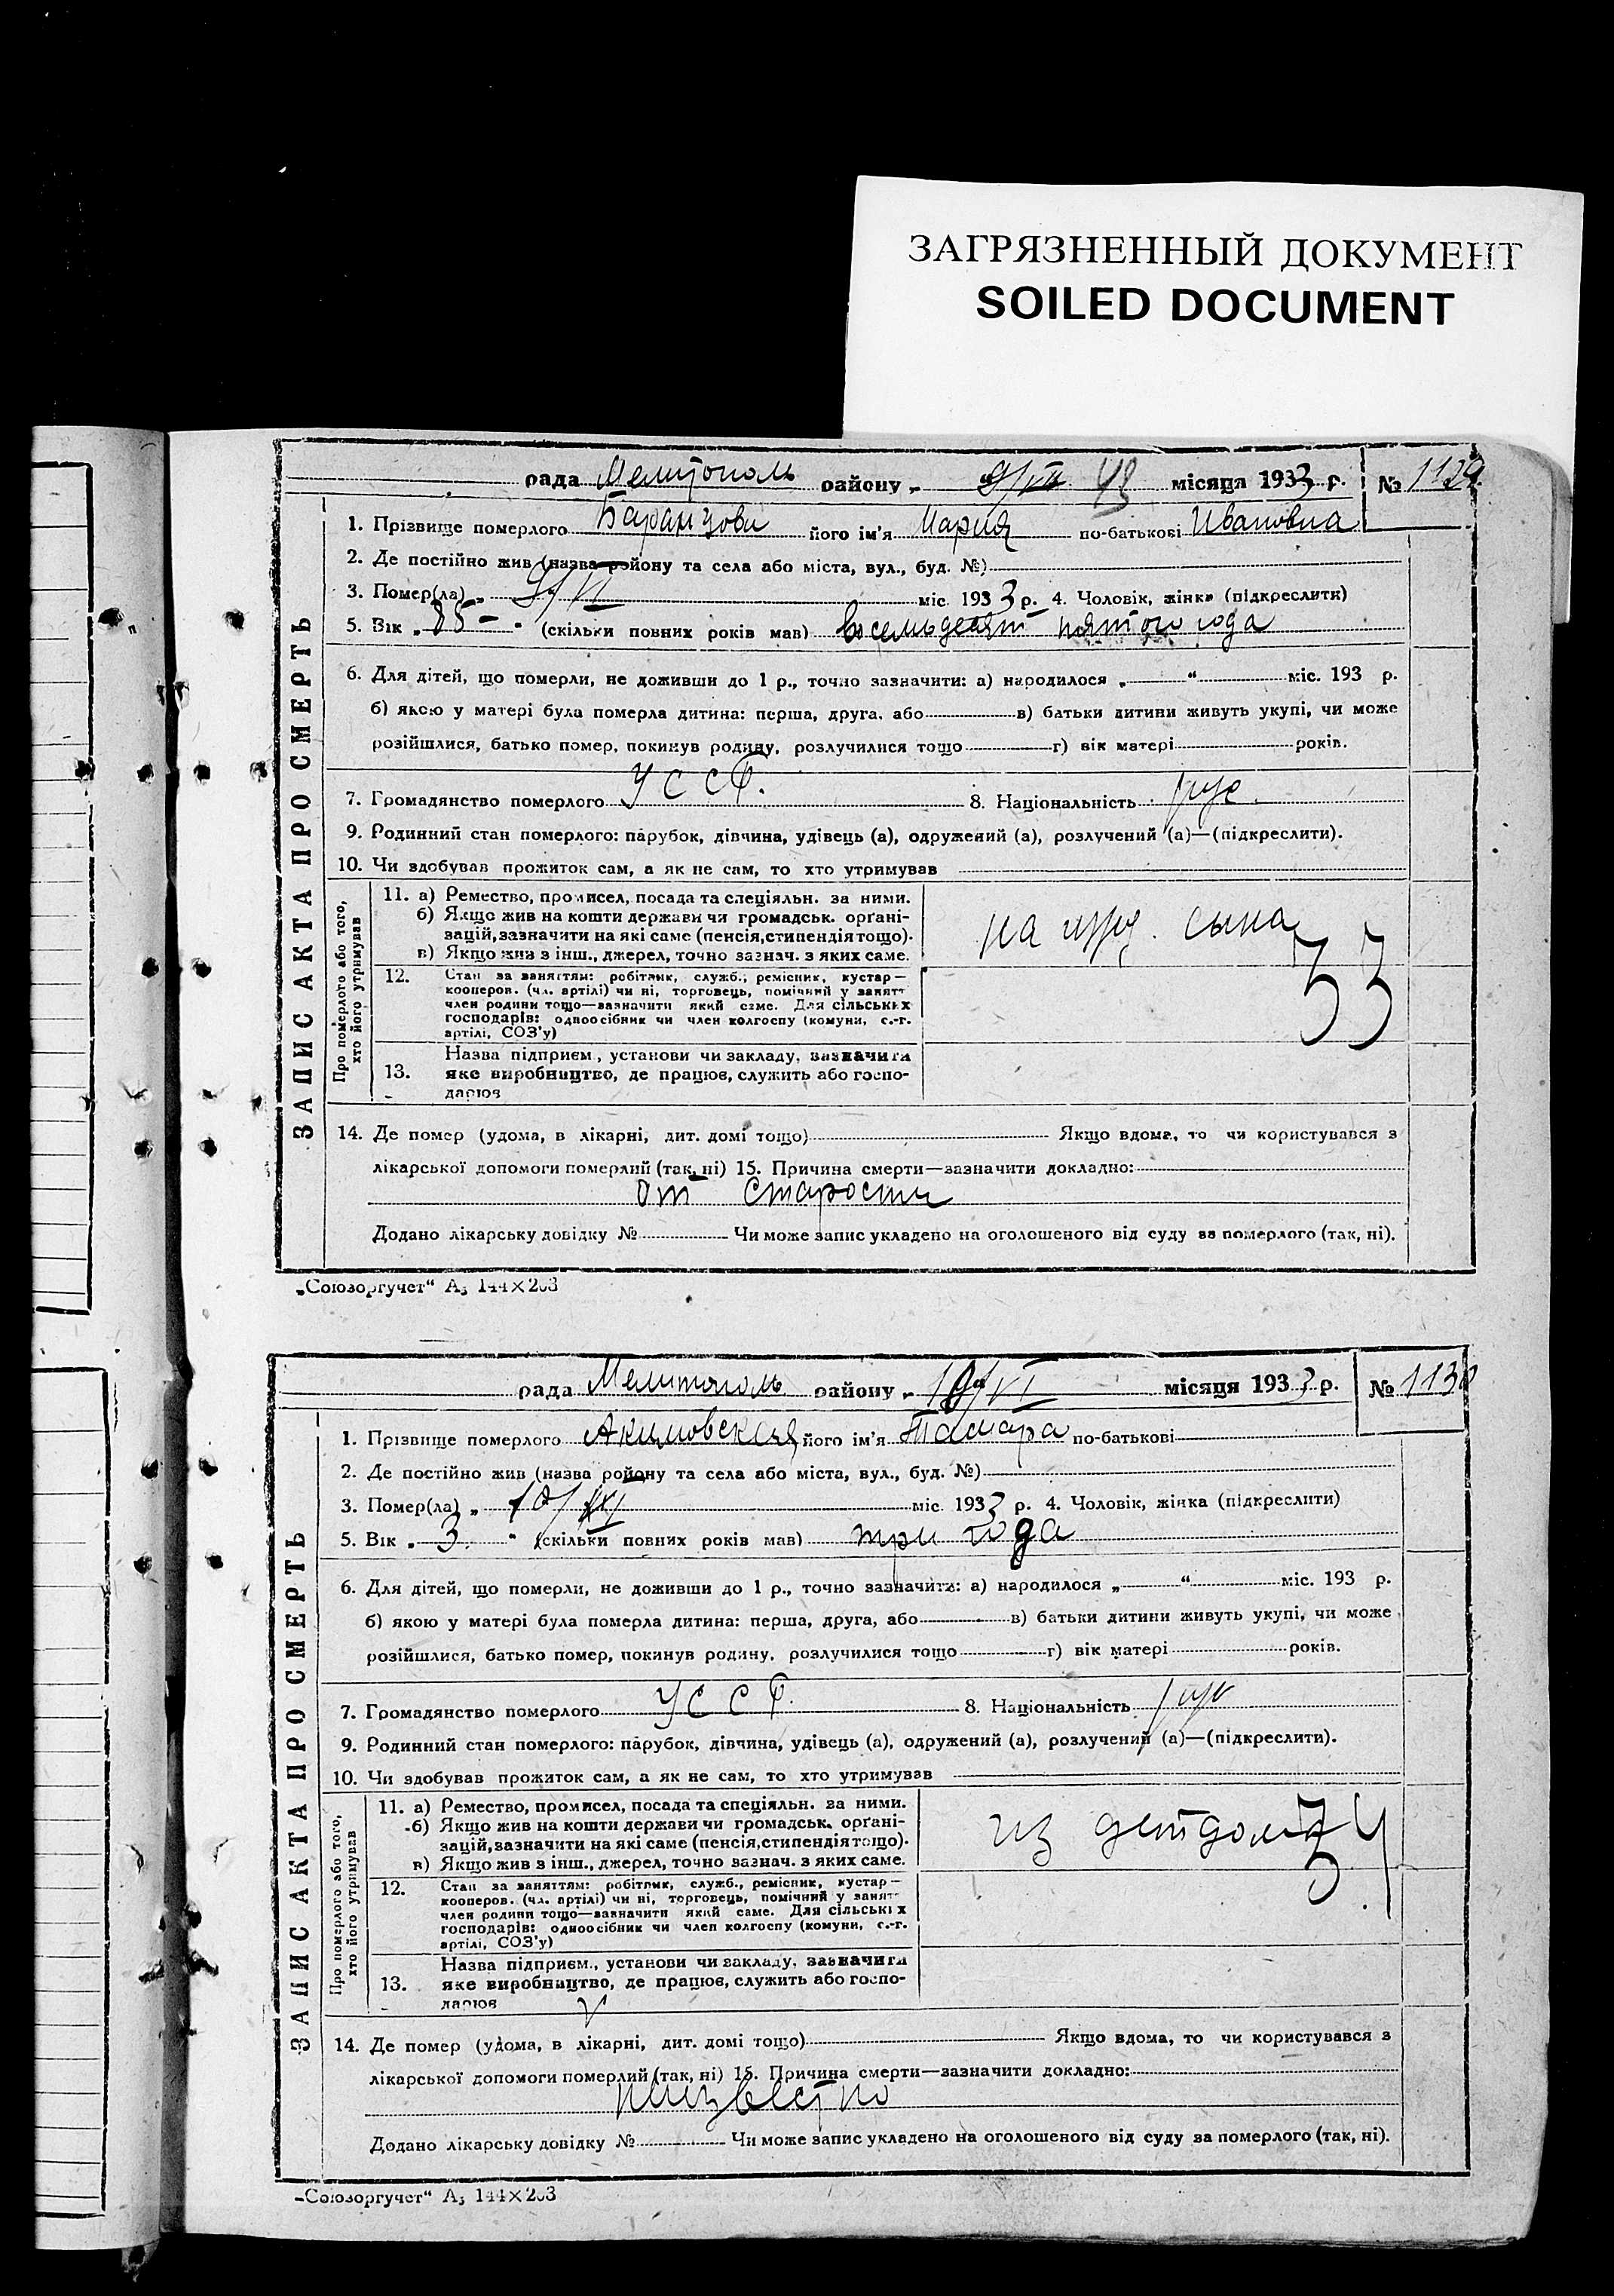 ЗАГРЯЗНЕННЫЙ ДОКУМЕНТ
SOILED DOCUMENT
рада Мелитополь району „ 9/VII місяця 1933 р. № 1129
1. Прізвище померлого його ім'я Мария по-батькові Ивановна
2. Де постійно жив (назва району та села або міста, вул., буд. №)
3. Помер(ла) „ 9/VI міс. 1933 р. 4. Чоловік, жінка (підкреслити)
5. Вік „ 85 " (скільки повних років мав) восемьдесят пятого года
6. Для дітей, що померли, не доживши до 1 р., точно зазначити: а) народилося „ “ міс. 193 р.
б) якою у матері була померла дитина: перша, друга, або в) батьки дитини живуть укупі, чи може
розійшлися, батько помер, покинув родину, розлучилися тощо г) вік матері років.
7. Громадянство померлого УССР. 8. Національність рус.
9. Родинний стан померлого: парубок, дівчина, удівець (а), одружений (а), розлучений (а)—(підкреслити).
10. Чи здобував прожиток сам, а як не сам, то хто утримував
ЗАПИС АКТА ПРО СМЕРТЬ
Про померлого або того,
хто його утримував
11. а) Ремество, промисел, посада та спеціяльн. за ними.
б) Якщо жив на кошти держави чи громадськ. орґані-
зацій, зазначити на які саме (пенсія, стипендія тощо).
в) Якщо жив з інш., джерел, точно зазнач. з яких саме.
на ижд. сына
33
12. Стан за заняттям: робітник, служб., ремісник, кустар—
кооперов. (чл. артілі) чи ні, торговець, помічний у занятт
член родини тощо—зазначити який саме. Для сільських
господарів: одноосібник чи член колгоспу (комуни, с.-г.
артілі, СОЗ'у)
13. Назва підприєм., установи чи закладу, зазначити
яке виробництво, де працює, служить або госпо-
дарює
14. Де помер (удома, в лікарні, дит. домі тощо) Якщо вдома, то чи користувався з
лікарської допомоги померлий (так, ні) 15. Причина смерти—зазначити докладно:
от старости
Додано лікарську довідку № Чи може запис укладено на оголошеного від суду за померлого (так, ні).
„Союзоргучет“ А₅ 144×203
рада Мелитополь району „ 10/VI місяця 1933 р. № 1130
1. Прізвище померлого Акимовская його ім'я Тамара по-батькові
2. Де постійно жив (назва району та села або міста, вул., буд. №)
3. Помер(ла) „ 10/VI міс. 1933 р. 4. Чоловік, жінка (підкреслити)
5. Вік „ 3. “ (скільки повних років мав) три года
6. Для дітей, що померли, не доживши до 1 р., точно зазначити: а) народилося „ “ міс. 193 р.
б) якою у матері була померла дитина: перша, друга, або в) батьки дитини живуть укупі, чи може
розійшлися, батько помер, покинув родину, розлучилися тощо г) вік матері років.
7. Громадянство померлого УССР. 8. Національність рус
9. Родинний стан померлого: парубок, дівчина, удівець (а), одружений (а), розлучений (а)—(підкреслити).
10. Чи здобував прожиток сам, а як не сам, то хто утримував
ЗАПИС АКТА ПРО СМЕРТЬ
Про померлого або того,
хто його утримував
11. а) Ремество, промисел, посада та спеціяльн. за ними.
б) Якщо жив на кошти держави чи громадськ. орґані-
зацій, зазначити на які саме (пенсія, стипендія тощо).
в) Якщо жив з інш., джерел, точно зазнач. з яких саме.
из детдома
34
12. Стан за заняттям: робітник, служб., ремісник, кустар—
кооперов. (чл. артілі) чи ні, торговець, помічний у занятт
член родини тощо—зазначити який саме. Для сільських
господарів: одноосібник чи член колгоспу (комуни, с.-г.
артілі, СОЗ'у)
13. Назва підприєм., установи чи закладу, зазначити
яке виробництво, де працює, служить або госпо-
дарює
14. Де помер (удома, в лікарні, дит. домі тощо) Якщо вдома, то чи користувався з
лікарської допомоги померлий (так, ні) 15. Причина смерти—зазначити докладно:
неизвестно
Додано лікарську довідку № Чи може запис укладено на оголошеного від суду за померлого (так, ні).
„Союзоргучет“ А₅ 144×203